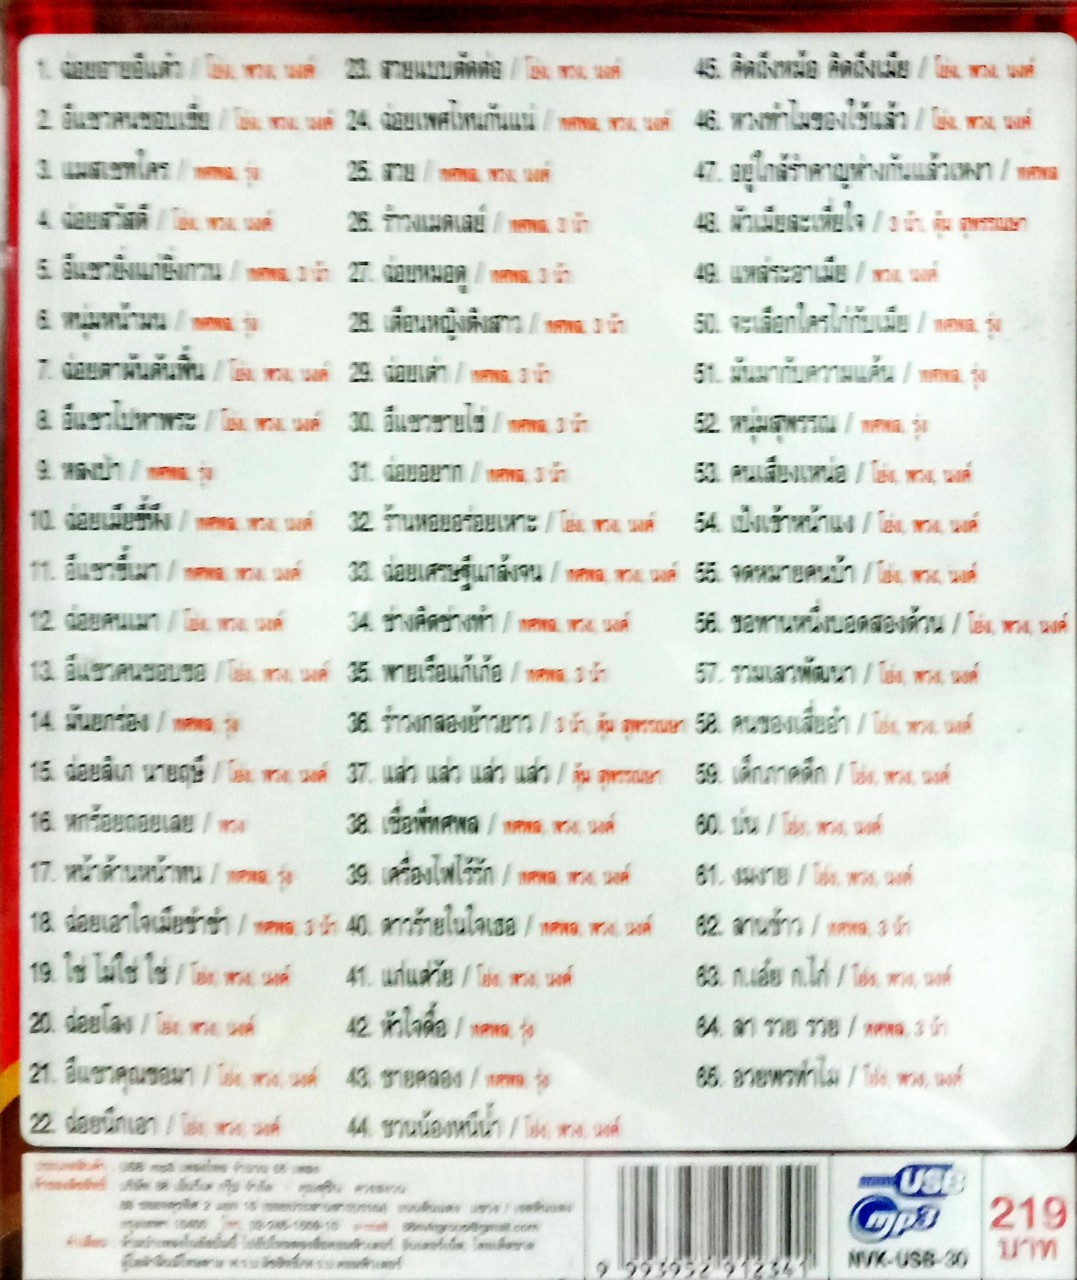 1. ฉ่อยอายอีแต๋ว / โย่ง, พวง, นงค์
2. อีแซวคนชอบเชี่ย / โย่ง, พวง, นงค์
3. แมสเซทใคร / ทศพล, รุ่ง
4. ฉ่อยสวัสดี / โย่ง, พวง, นงค์
5. อีแซวยิ่งแก่ยิ่งกวน / ทศพล, 3 น้า
6. หนุ่มหน้ามน / ทศพล, รุ่ง
7. ฉ่อยตาฝันต้นฟื้น / โย่ง, พวง, นงค์
8. อีแซวไปหาพระ / โย่ง, พวง, นงค์
9. หลงป้า / ทศพล, รุ่ง
10. ฉ่อยเมียขี้หึง / ทศพล, พวง, นงค์
11. อีแซวขี้เมา / ทศพล, พวง, นงค์
12. ฉ่อยคนเมา / โย่ง, พวง, นงค์
13. อีแซวคนชอบขอ / โย่ง, พวง, นงค์
14. มันยกร่อง / ทศพล, รุ่ง
15. ฉ่อยลิเก นายฤษี / โย่ง, พวง, นงค์
16. หกร้อยถอยเลย / พวง
17. หน้าด้านหน้าทน / ทศพล, รุ่ง
18. ฉ่อยเอาใจเมียช้ำช้ำ / ทศพล, 3 น้า
19. ใช่ ไม่ใช่ ใช่ / โย่ง, พวง, นงค์
20. ฉ่อยโลง / โย่ง, พวง, นงค์
21. อีแซวคุณขอมา / โย่ง, พวง, นงค์
22. ฉ่อยนึกเอา / โย่ง, พวง, นงค์
23. สวยแบบตัดต่อ / โย่ง, พวง, นงค์
24. ฉ่อยเพศไหนกันแน่ / ทศพล, พวง, นงค์
25. สวย / ทศพล, พวง, นงค์
26. รำวงเมดเลย์ / ทศพล, 3 น้า
27. ฉ่อยหมอดู / ทศพล, 3 น้า
28. เตือนหญิงติงสาว / ทศพล, 3 น้า
29. ฉ่อยเต่า / ทศพล, 3 น้า
30. อีแซวขายไข่ / ทศพล, 3 น้า
31. ฉ่อยอยาก / ทศพล, 3 น้า
32. ร้านหอยอร่อยเหาะ / โย่ง, พวง, นงค์
33. ฉ่อยเศรษฐีแกล้งจน / ทศพล, พวง, นงค์
34. ช่างคิดช่างทำ / ทศพล, พวง, นงค์
35. พายเรือแก้เก้อ / ทศพล, 3 น้า
36. รำวงกลองย้าวยาว / 3 น้า, ตุ้ม สุพรรณษา
37. แล่ว แล่ว แล่ว แล่ว / ตุ้ม สุพรรณษา
38. เชื่อพี่ทศพล / ทศพล, พวง, นงค์
39. เครื่องไฟไร้รัก / ทศพล, พวง, นงค์
40. ดาวร้ายในใจเธอ / ทศพล, พวง, นงค์
41. แก่แต่วัย / โย่ง, พวง, นงค์
42. หัวใจดื้อ / ทศพล, รุ่ง
43. ชายคลอง / ทศพล, รุ่ง
44. ชวนน้องหนีน้ำ / โย่ง, พวง, นงค์
45. คิดถึงหม้อ คิดถึงเมีย / โย่ง, พวง, นงค์
46. หวงทำไมของใช้แล้ว / โย่ง, พวง, นงค์
47. อยู่ใกล้รำคาญห่างกันแล้วเหงา / ทศพล
48. ผัวเมียละเหี่ยใจ / 3 น้า, ตุ้ม สุพรรณษา
49. แหล่ระอาเมีย / พวง, นงค์
50. จะเลือกใครไก่กับเมีย / ทศพล, รุ่ง
51. มันมากับความแค้น / ทศพล, รุ่ง
52. หนุ่มสุพรรณ / ทศพล, รุ่ง
53. คนเสียงเหน่อ / โย่ง, พวง, นงค์
54. เป้งเข้าหน้าแง / โย่ง, พวง, นงค์
55. จดหมายคนบ้า / โย่ง, พวง, นงค์
56. ขอทานหนึ่งบอดสองด้วน / โย่ง, พวง, นงค์
57. รวมเลวพัฒนา / โย่ง, พวง, นงค์
58. คนของเสี่ยอ๋า / โย่ง, พวง, นงค์
59. เด็กภาคดึก / โย่ง, พวง, นงค์
60. บ่น / โย่ง, พวง, นงค์
61. งมงาย / โย่ง, พวง, นงค์
62. ลานข้าว / ทศพล, 3 น้า
63. ก.เอ๋ย ก.ไก่ / โย่ง, พวง, นงค์
64. ลา รวย รวย / ทศพล, 3 น้า
65. อวยพรทำไม / โย่ง, พวง, นงค์
USB mp3 เพลงไทย จำนวน 65 เพลง
9 993952 912341
USB
mp3
NVK-USB-30
219
บาท